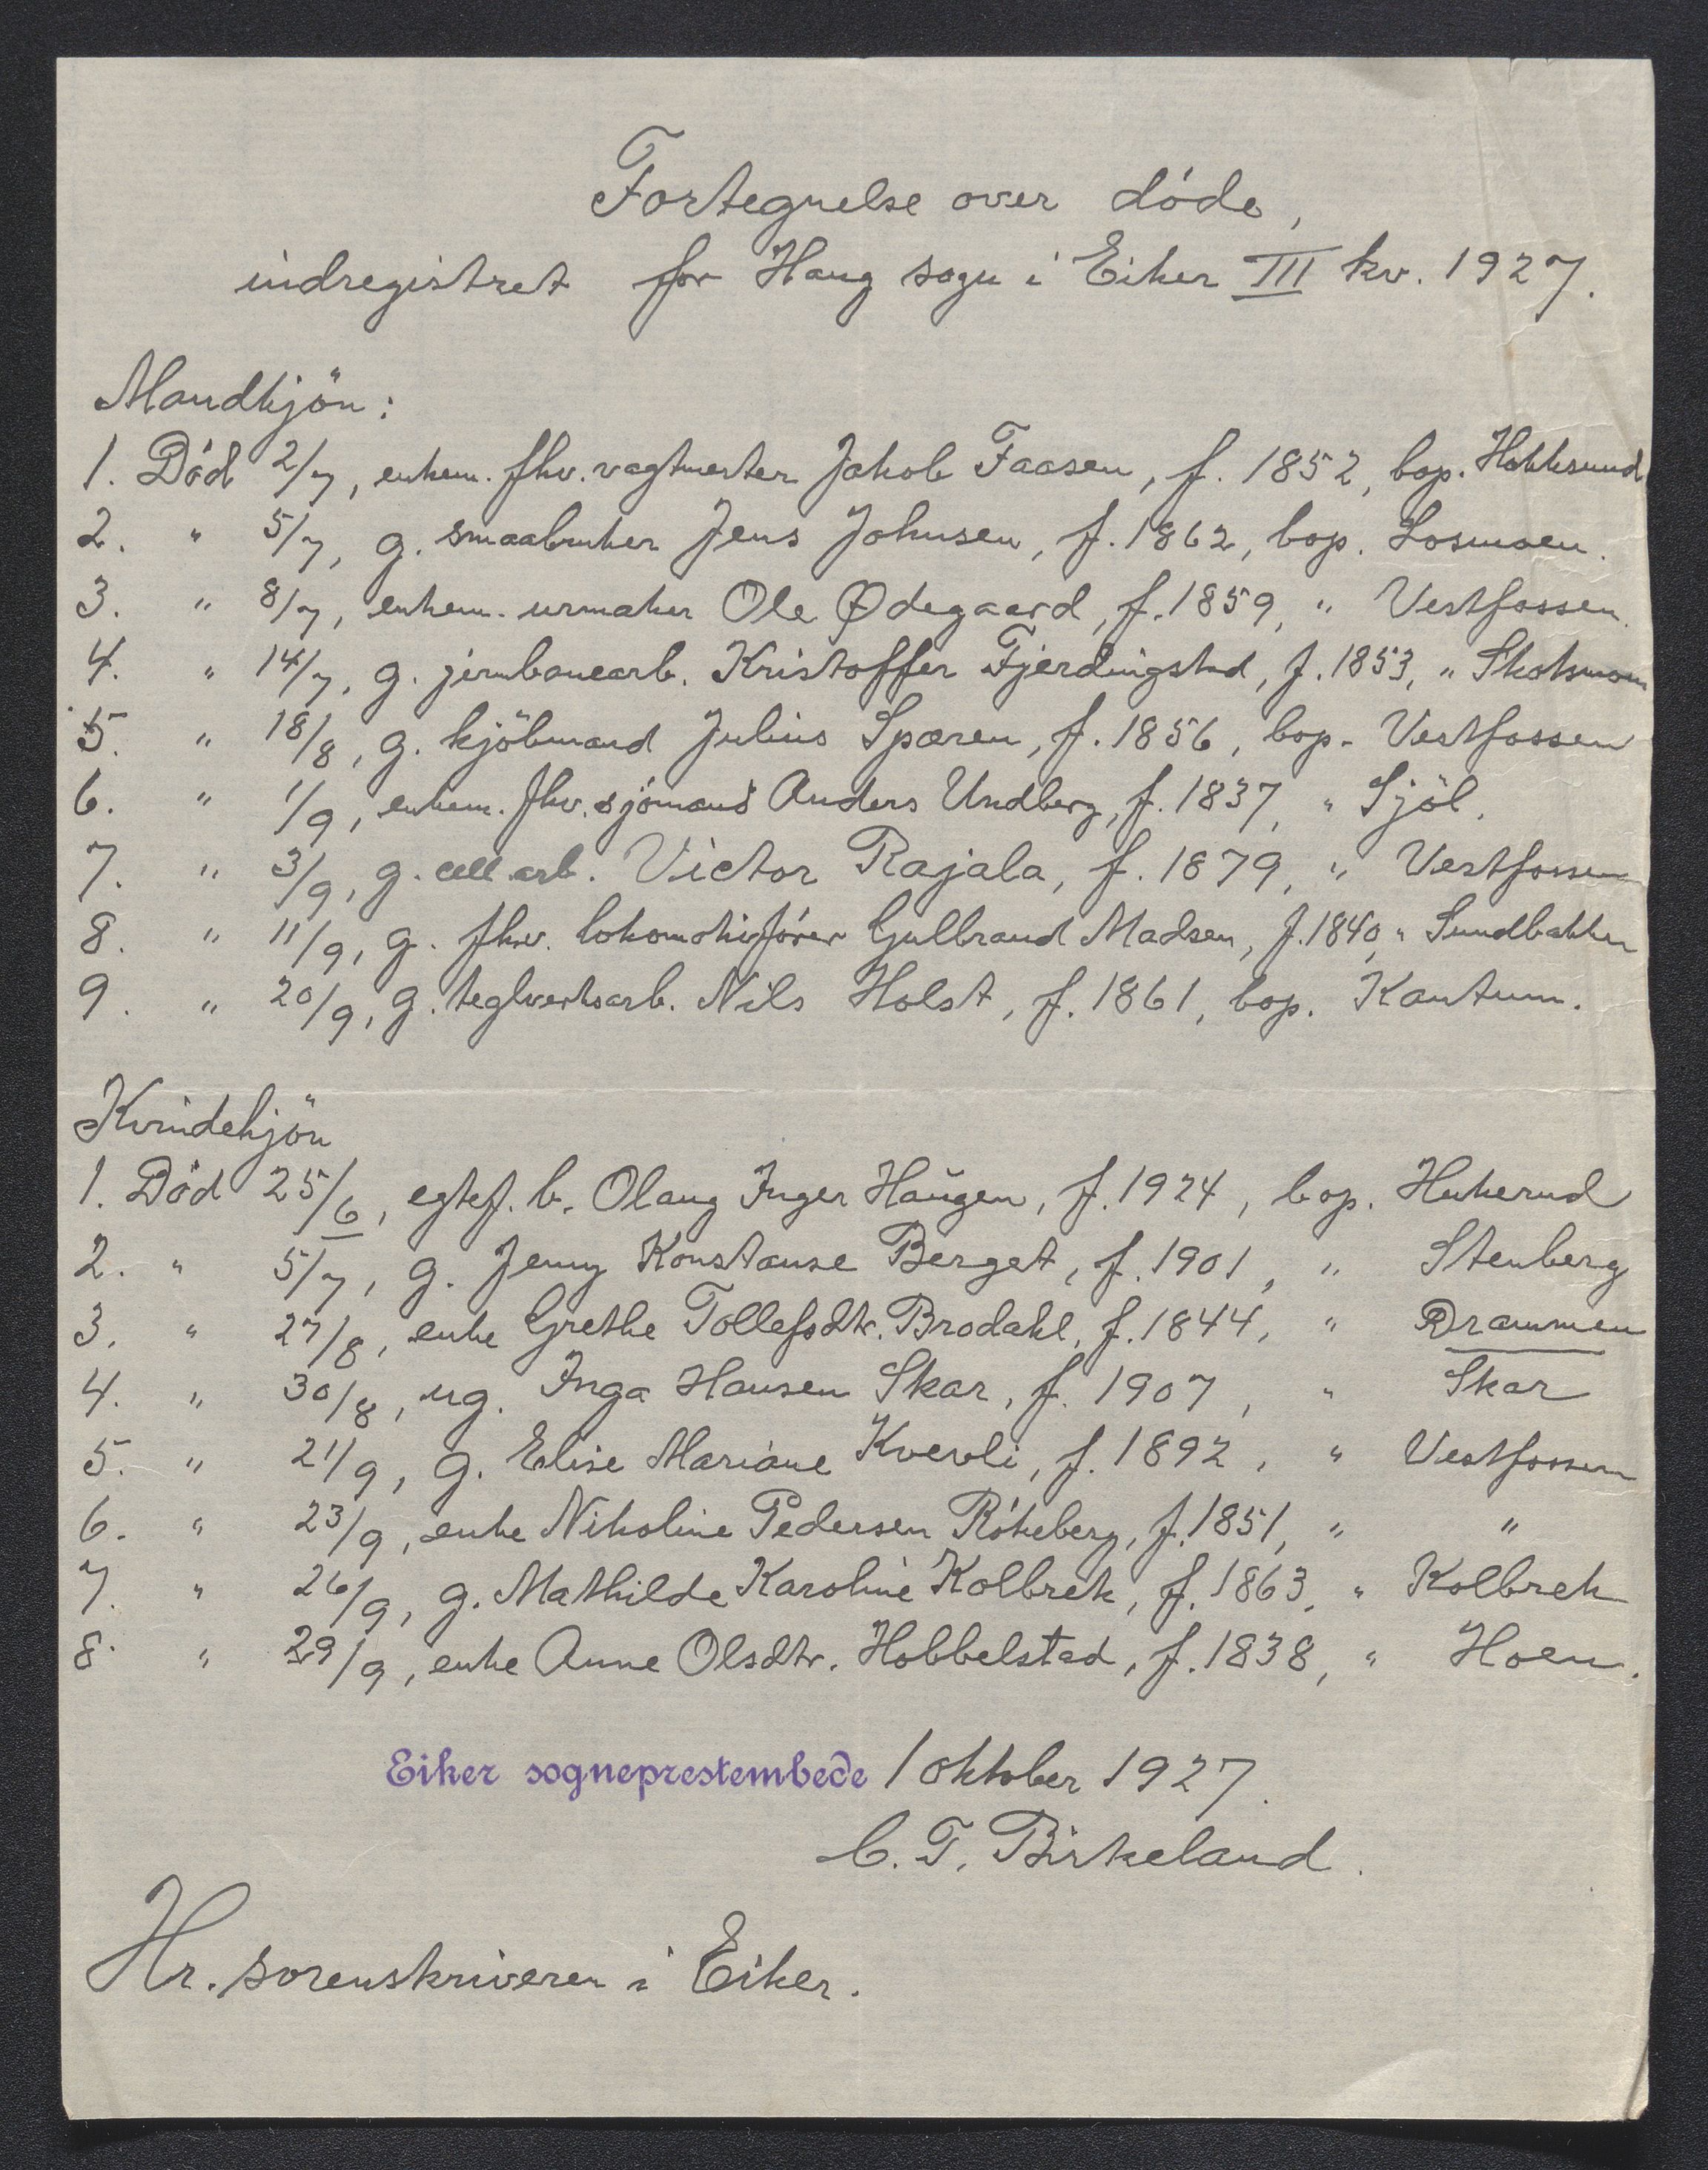 Fortegnelse over døde,
indregistret for Haug sogn i Eiker III kv. 1927.
Mandkjön:
1. Död 2/7, enkem. fhv. vagtmester Jakob Faasen, f. 1852, bop. Hokksund
2. " 5/7, g. smaabruker Jens Johnsen, f. 1862, bop. Losmoen.
3. " 8/7, enkem. urmaker Ole Ødegaard, f. 1859, " Vestfossen.
4. " 14/7, g. jernbanearb. Kristoffer Fjerdingstad, f. 1853, " Skotsmoen
5. " 18/8, g. kjöbmand Julius Spæren, f. 1856, bop. Vestfossen
6. " 1/9, enkem. fhv. sjömand Anders Undberg, f. 1837, " Sjöl.
7. " 3/9, g. cell.arb. Victor Rajala, f. 1879, " Vestfossen
8. " 11/9, g. fhv. lokomotivfører Gulbrand Madsen, f. 1840, " Sundbakken
9. " 20/9, g. teglverksarb. Nils Holst, f. 1861, bop. Kantum.
Kvindekjön
1. Död 25/6, egtef. b. Olaug Inger Haugen, f. 1924, bop. Hukerud
2. " 5/7, g. Jenny Konstanse Berget, f. 1901, " Stenberg
3. " 27/8, enke Grethe Tollefsdtr. Brodahl, f. 1844, " Drammen
4. " 30/8, ug. Inga Hansen Skar, f. 1907, " Skar
5. " 21/9, g. Elise Mariane Kverli, f. 1892, " Vestfossen
6. " 23/9, enke Nikoline Pedersen Røkeberg, f. 1851, " "
7. " 26/9, g. Mathilde Karoline Kolbrek, f. 1863, " Kolbrek
8. " 29/9, enke Anne Olsdtr. Hobbelstad, f. 1838, " Hoen.
Eiker sogneprestembede 1 oktober 1927.
C. T. Birkeland.
Hr. sorenskriveren i Eiker.